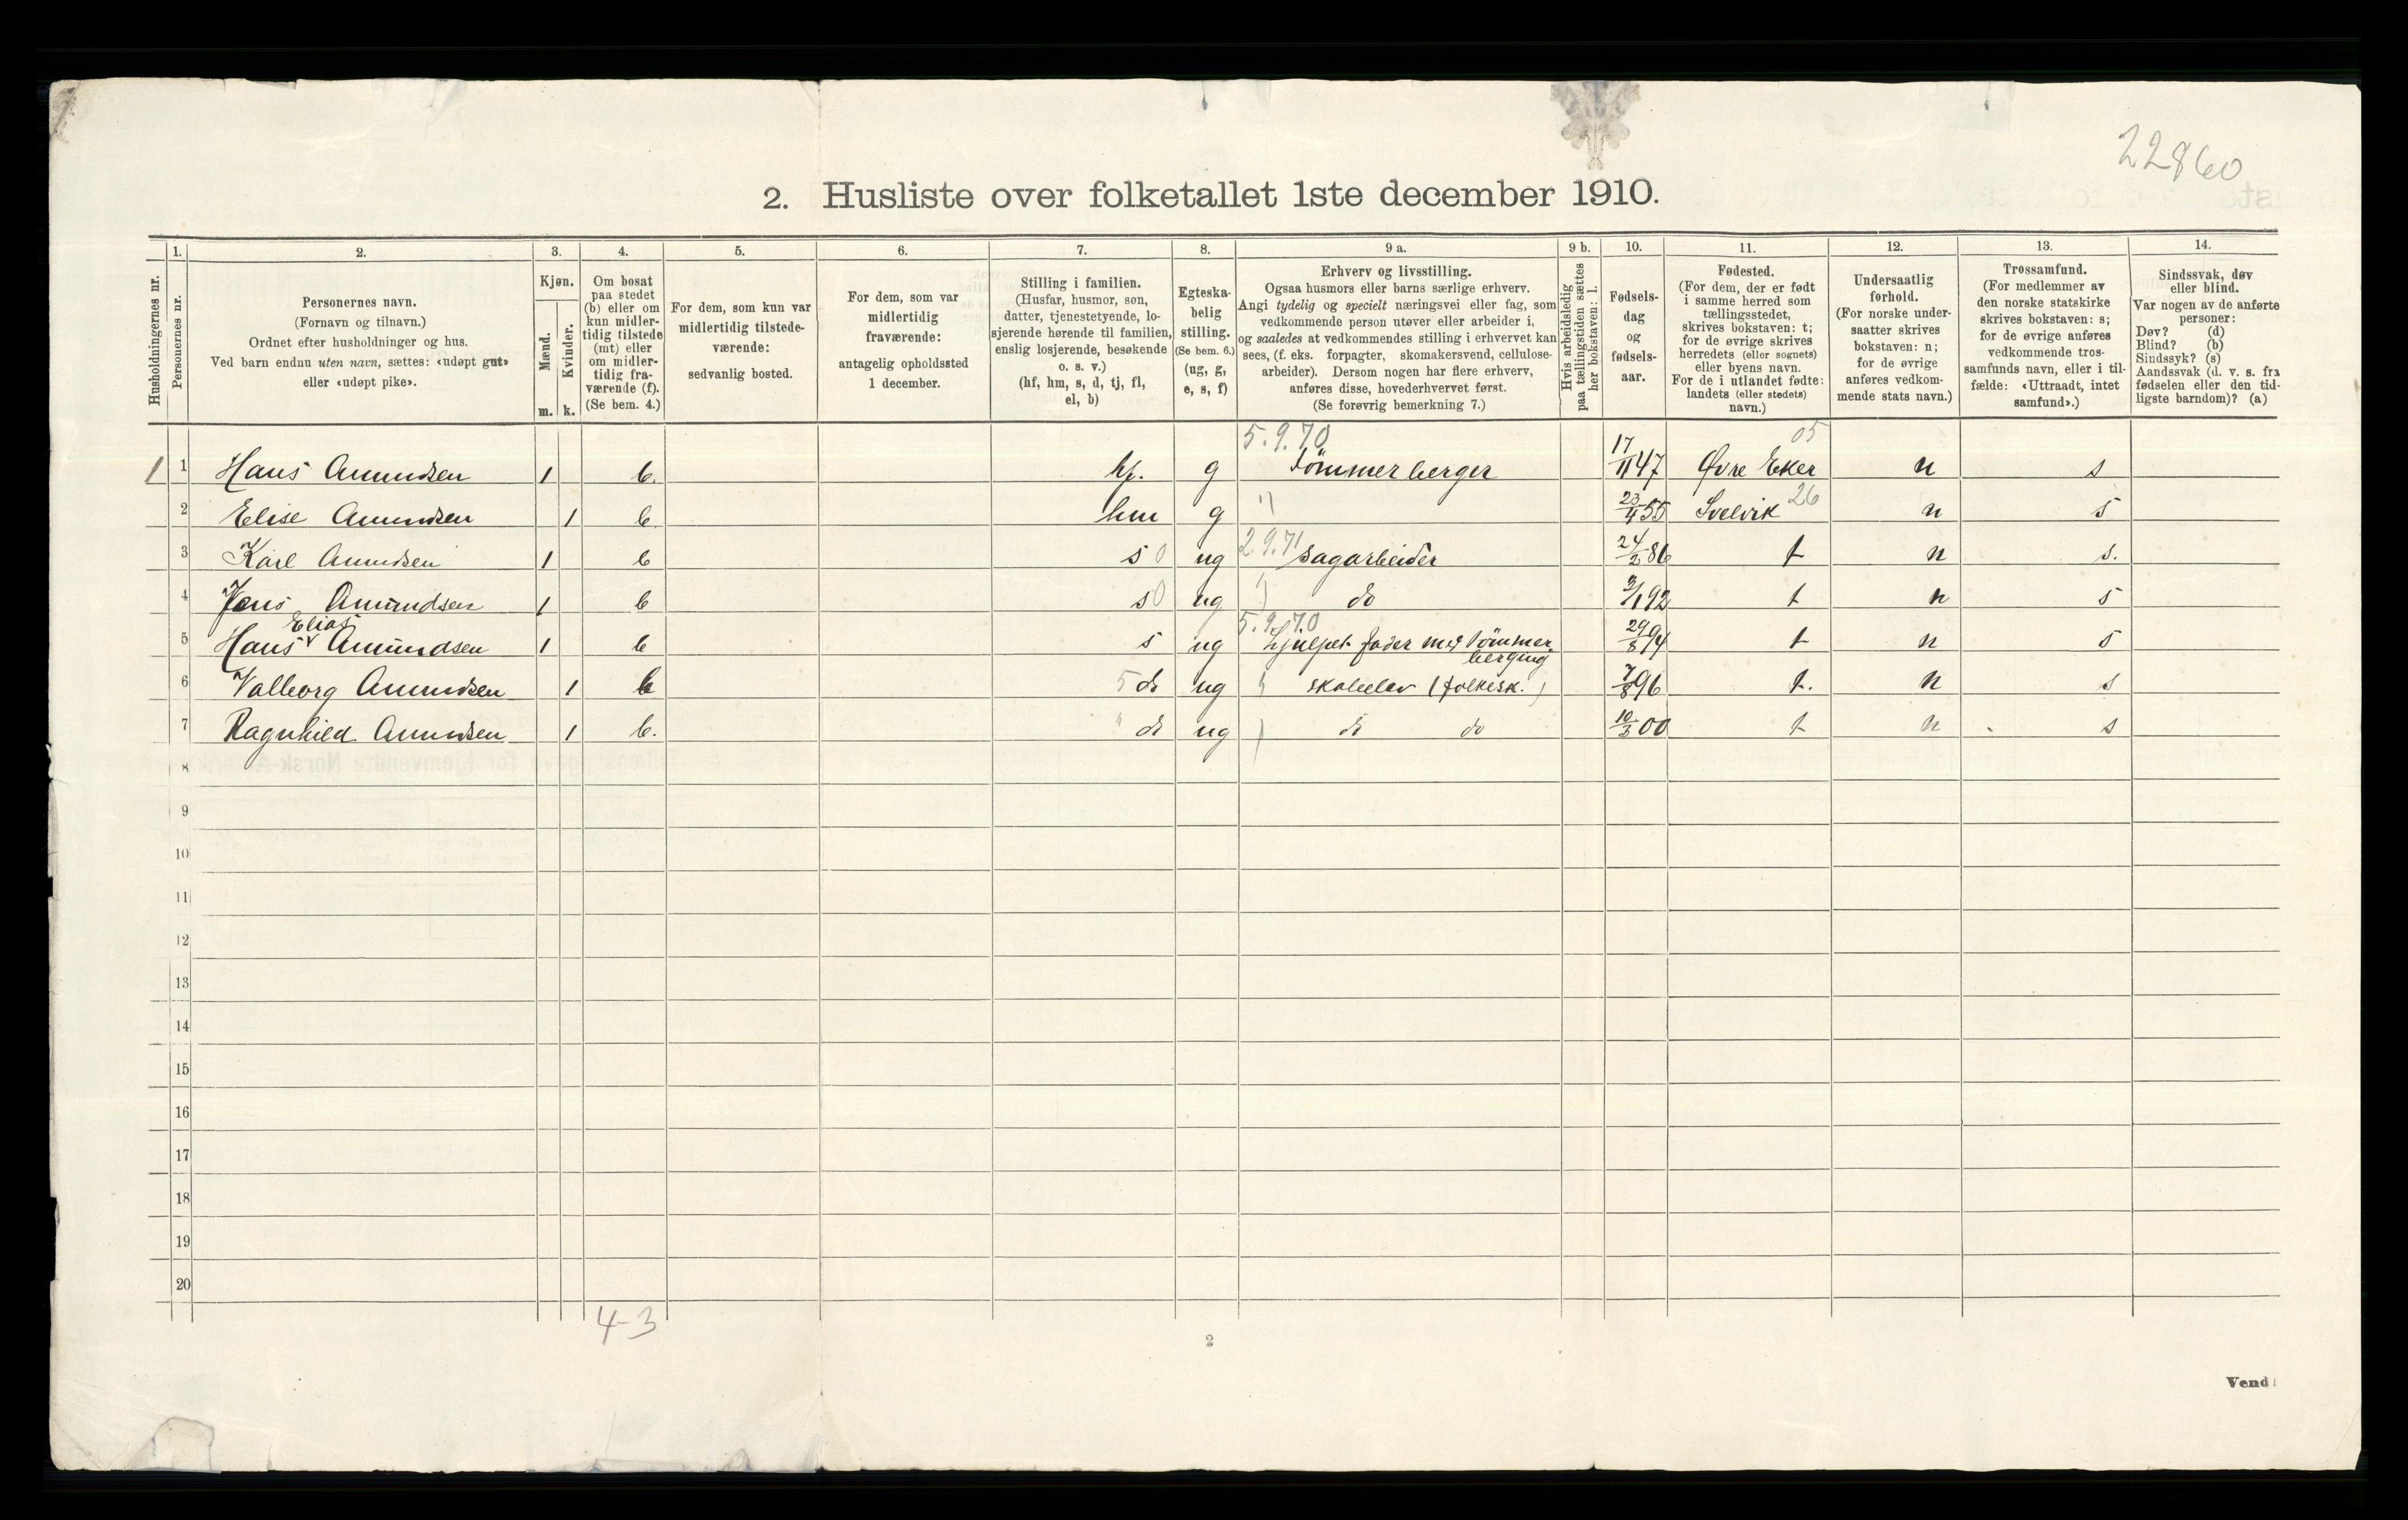 22860
2. Husliste over folketallet 1ste december 1910.
Husholdningernes nr.
1.
Personernes nr.
2.
Personernes navn.
(Fornavn og tilnavn.)
Ordnet efter husholdninger og hus.
Ved barn endnu uten navn, sættes: «udøpt gut»
eller «udøpt pike».
3.
Kjøn.
Mænd.
Kvinder.
m. k.
4.
Om bosat
paa stedet
(b) eller om
kun midler-
tidig tilstede
(mt) eller
om midler-
tidig fra-
værende (f).
(Se bem. 4.)
5.
For dem, som kun var
midlertidig tilstede-
værende:
sedvanlig bosted.
6.
For dem, som var
midlertidig
fraværende:
antagelig opholdssted
1 december.
7.
Stilling i familien.
(Husfar, husmor, søn,
datter, tjenestetyende, lo-
sjerende hørende til familien,
enslig losjerende, besøkende
o. s. v.)
(hf, hm, s, d, tj, fl,
el, b)
8.
Egteska-
belig
stilling.
(Se bem. 6.)
(ug, g,
e, s, f)
9 a.
Erhverv og livsstilling.
Ogsaa husmors eller barns særlige erhverv.
Angi tydelig og specielt næringsvei eller fag, som
vedkommende person utøver eller arbeider i,
og saaledes at vedkommendes stilling i erhvervet kan
sees, (f. eks. forpagter, skomakersvend, cellulose-
arbeider). Dersom nogen har flere erhverv,
anføres disse, hovederhvervet først.
(Se forøvrig bemerkning 7.)
9 b.
Hvis arbeidsledig
paa tællingstiden sættes
her bokstaven: l.
10.
Fødsels-
dag
og
fødsels-
aar.
11.
Fødested.
(For dem, der er født
i samme herred som
tællingsstedet,
skrives bokstaven: t;
for de øvrige skrives
herredets (eller sognets)
eller byens navn.
For de i utlandet fødte:
landets (eller stedets)
navn.)
12.
Undersaatlig
forhold.
(For norske under-
saatter skrives
bokstaven: n;
for de øvrige
anføres vedkom-
mende stats navn.)
13.
Trossamfund.
(For medlemmer av
den norske statskirke
skrives bokstaven: s;
for de øvrige anføres
vedkommende tros-
samfunds navn, eller i til-
fælde: «Uttraadt, intet
samfund».)
14.
Sindssvak, døv
eller blind.
Var nogen av de anførte
personer:
Døv? (d)
Blind? (b)
Sindssyk? (s)
Aandssvak (d. v. s. fra
fødselen eller den tid-
ligste barndom)? (a)
5.9.70 05
1 1 Hans Amundsen 1 b. hf. g Tømmerberger 17/11 47 Øvre Eker n s
2 Elise Amundsen 1 b hm g " 23/4 55 Svelvik 26 n s
3 Karl Amundsen 1 b s 0 ug 2.9.71 sagarbeider 24/2 86 t n s.
4 Jens Amundsen 1 b s 0 ug do 92 t n s
Elias 5.9.70
5 Hans Amundsen 1 b s ug hjælper fader med tømmer-
berging 29/8 94 t n s
6 Valborg Amundsen 1 b 5 d ug skoleelev (folkesk.) 7/8 96 t. n s
7 Ragnhild Amundsen 1 b. " d ug do do 10/3 00 t n s
8
9
10
11
12
13
14
15
16
17
18
19
20
4-3
2
Vend